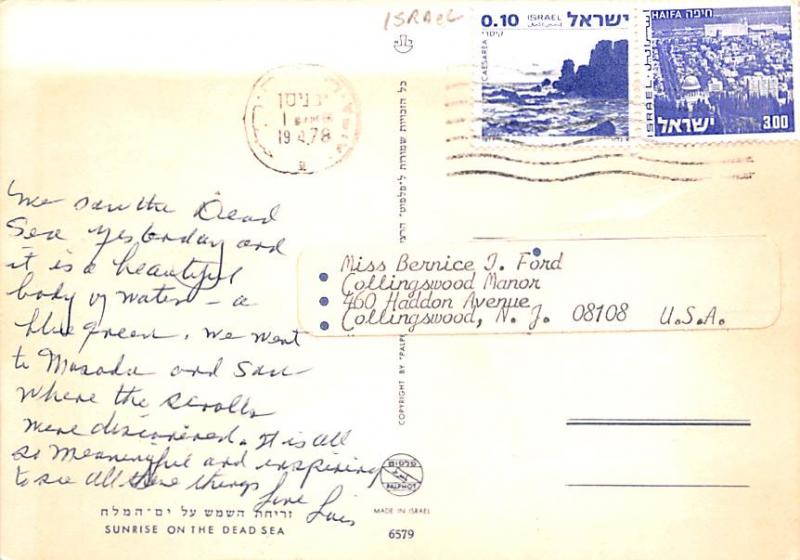 ISRAEL
0.10 ISRAEL ישראל
CAESAREA
HAIFA חיפה
ISRAEL
ישראל 3.00
ניסן
19.4.78
We saw the Dead
Sea yesterday and
it is a beautiful
body of water – a
blue green. We went
to Masada and saw
where the scrolls
were discovered. It is all
so meaningful and inspiring
to see all these things
Love Lois
Miss Bernice J. Ford
Collingswood Manor
460 Haddon Avenue
Collingswood, N. J. 08108 U.S.A.
כל הזכויות שמורות ל"פלפוט"
COPYRIGHT BY "PALPH
פלפוט
PALPHOT
MADE IN ISRAEL
6579
זריחת השמש על ים-המלח
SUNRISE ON THE DEAD SEA